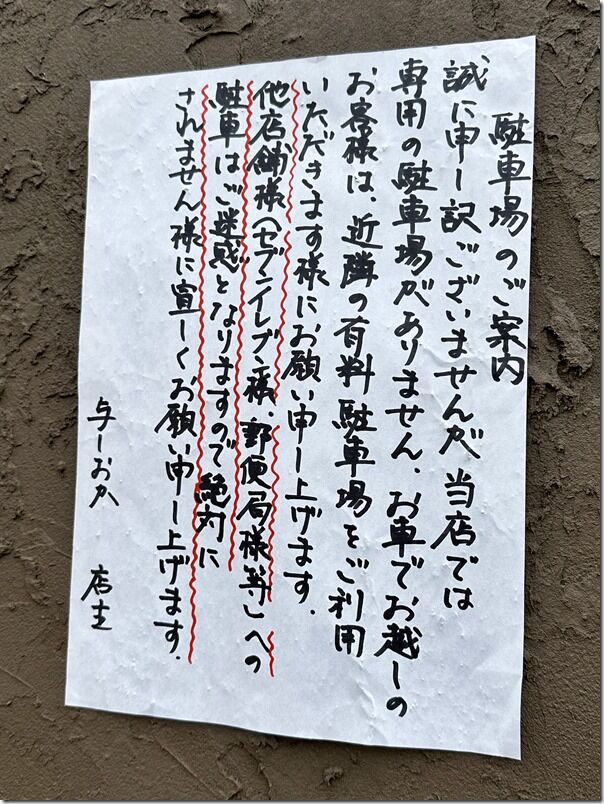 駐車場のご案内
誠に申し訳ございませんが当店では
専用の駐車場がありません、お車でお越しの
お客様は、近隣の有料駐車場をご利用
いただきます様にお願い申し上げます.
他店舗様(セブンイレブン様、郵便局様等)への
駐車はご迷惑となりますので絶対に
されません様に宜しくお願い申し上げます.
与しおか 店主